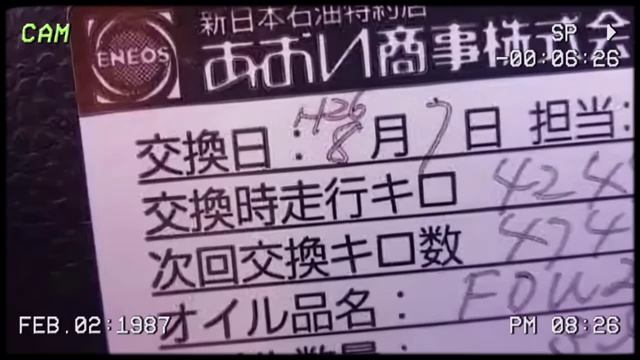 CAM
SP
-00:06:26
ENEOS
新日本石油特約店
あおい商事株式会
交換日：H26 8月7日 担当：
交換時走行キロ 424
次回交換キロ数 474
オイル品名：
FEB.02:1987
PM 08:26